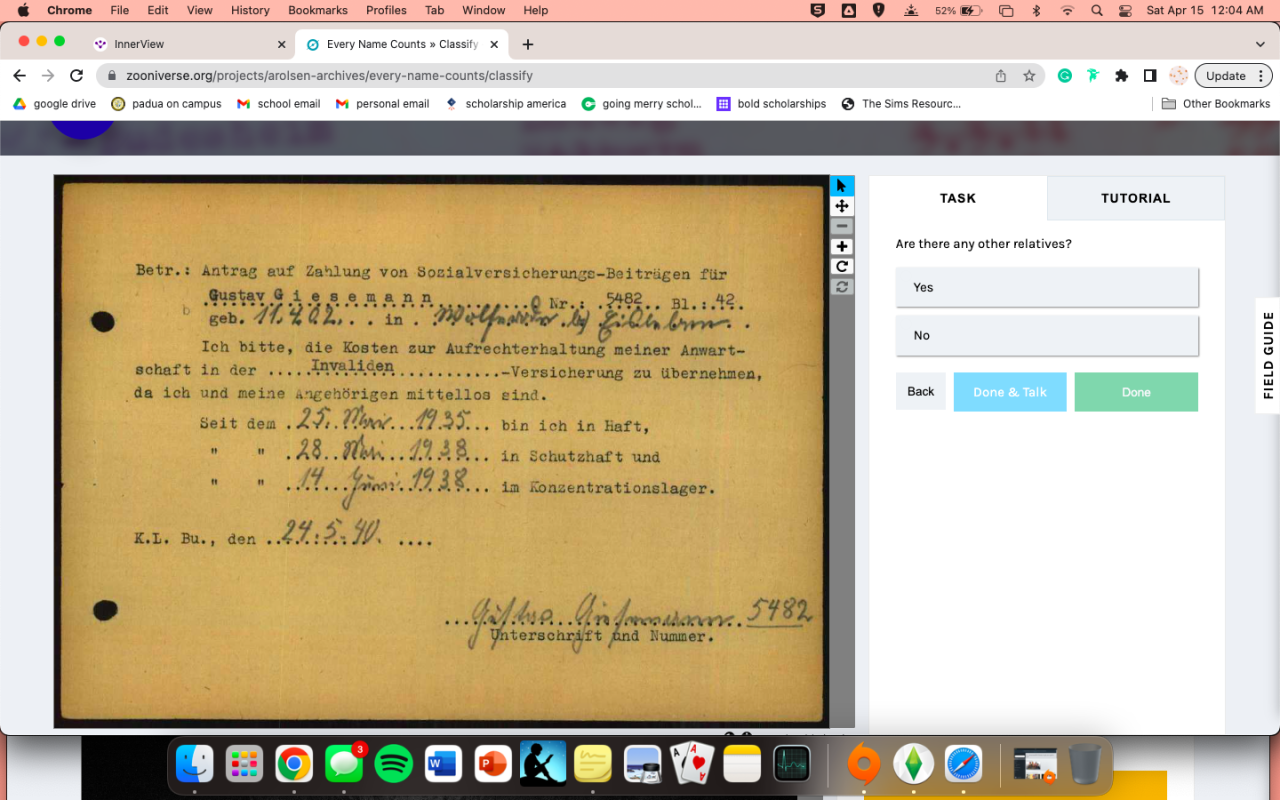 Chrome File Edit View History Bookmarks Profiles Tab Window Help 52% Sat Apr 15 12:04 AM
InnerView Every Name Counts » Classify
zooniverse.org/projects/arolsen-archives/every-name-counts/classify Update
google drive padua on campus school email personal email scholarship america going merry schol... bold scholarships The Sims Resourc... Other Bookmarks
Betr.: Antrag auf Zahlung von Sozialversicherungs-Beiträgen für
Gustav G i e s e m a n n Nr.: 5482 Bl.: 42.
b
geb. 11.4.02. in Eisleben
Ich bitte, die Kosten zur Aufrechterhaltung meiner Anwart-
schaft in der .....Invaliden............-Versicherung zu übernehmen,
da ich und meine Angehörigen mittellos sind.
Seit dem .25. 1935... bin ich in Haft,
" " .28. Mai 1938... in Schutzhaft und
" " .14. Juni 1938... im Konzentrationslager.
K.L. Bu., den ..24.5.40. ....
...Gustav Giesemann. 5482
Unterschrift und Nummer.
TASK TUTORIAL
Are there any other relatives?
Yes
No
Back Done & Talk Done
FIELD GUIDE
3
W P A A